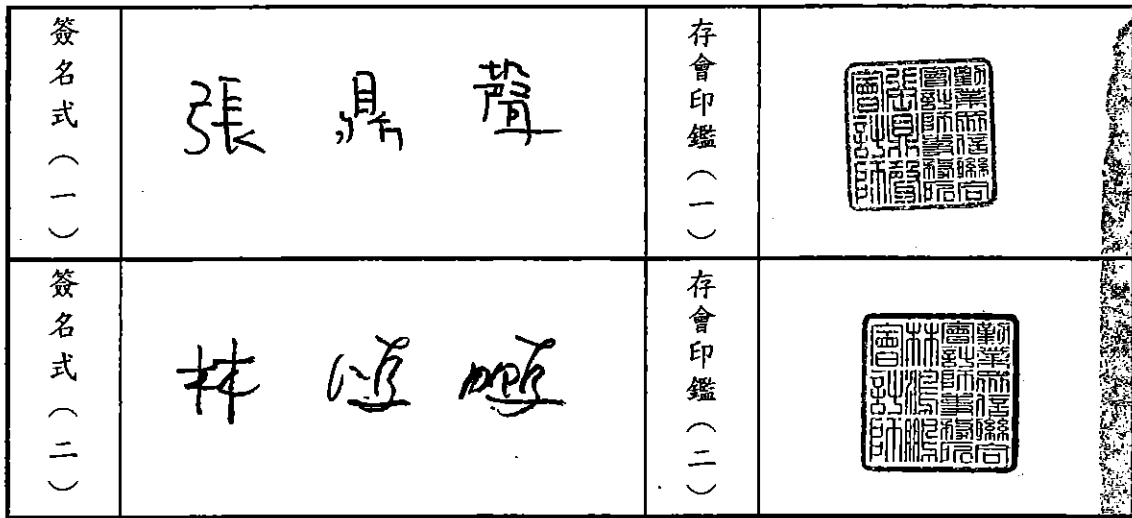 簽名式（一）
張鼎聲
存會印鑑（一）
勤業眾信聯合
會計師事務所
張鼎聲
會計師
簽名式（二）
林鴻鵬
存會印鑑（二）
勤業眾信聯合
會計師事務所
林鴻鵬
會計師